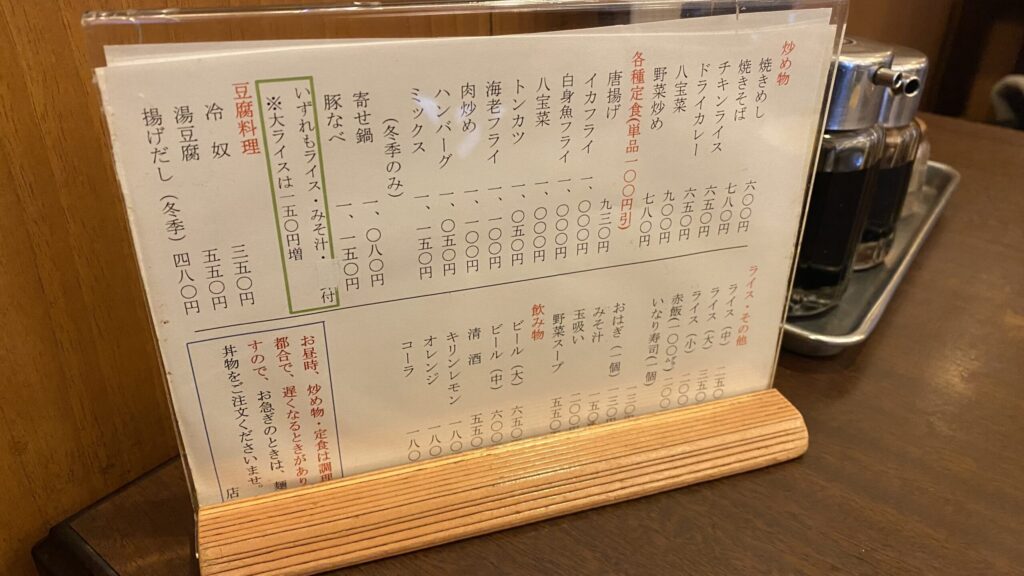 炒め物
焼きめし 六〇〇円
焼きそば 七八〇円
チキンライス 六五〇円
ドライカレー 六五〇円
八宝菜 九〇〇円
野菜炒め 七八〇円
各種定食(単品一〇〇円引)
唐揚げ 九三〇円
イカフライ 一、〇〇〇円
白身魚フライ 一、〇〇〇円
八宝菜 一、〇〇〇円
トンカツ 一、〇五〇円
海老フライ 一、〇〇〇円
肉炒め 一、一〇〇円
ハンバーグ 一、〇五〇円
ミックス 一、一五〇円
(冬季のみ)
寄せ鍋 一、〇八〇円
豚なべ 一、一五〇円
いずれもライス・みそ汁・ 付
※大ライスは一五〇円増
豆腐料理
冷奴 三五〇円
湯豆腐 五五〇円
揚げだし(冬季) 四八〇円
ライス・その他
ライス(中) 二五〇
ライス(大) 三五〇
ライス(小) 二〇〇
赤飯(一〇〇㌘) 二〇〇
いなり寿司(一個)
おはぎ(一個) 一三〇
みそ汁 一五〇
玉吸い 二〇〇
野菜スープ 五五〇
飲み物
ビール(大) 六五〇
ビール(中) 六〇〇
清酒 五五〇
キリンレモン 一八〇
オレンジ 一八〇
コーラ 一八〇
お昼時、炒め物・定食は調理
都合で、遅くなるときがあり
すので、お急ぎのときは、麺
丼物をご注文くださいませ。
店